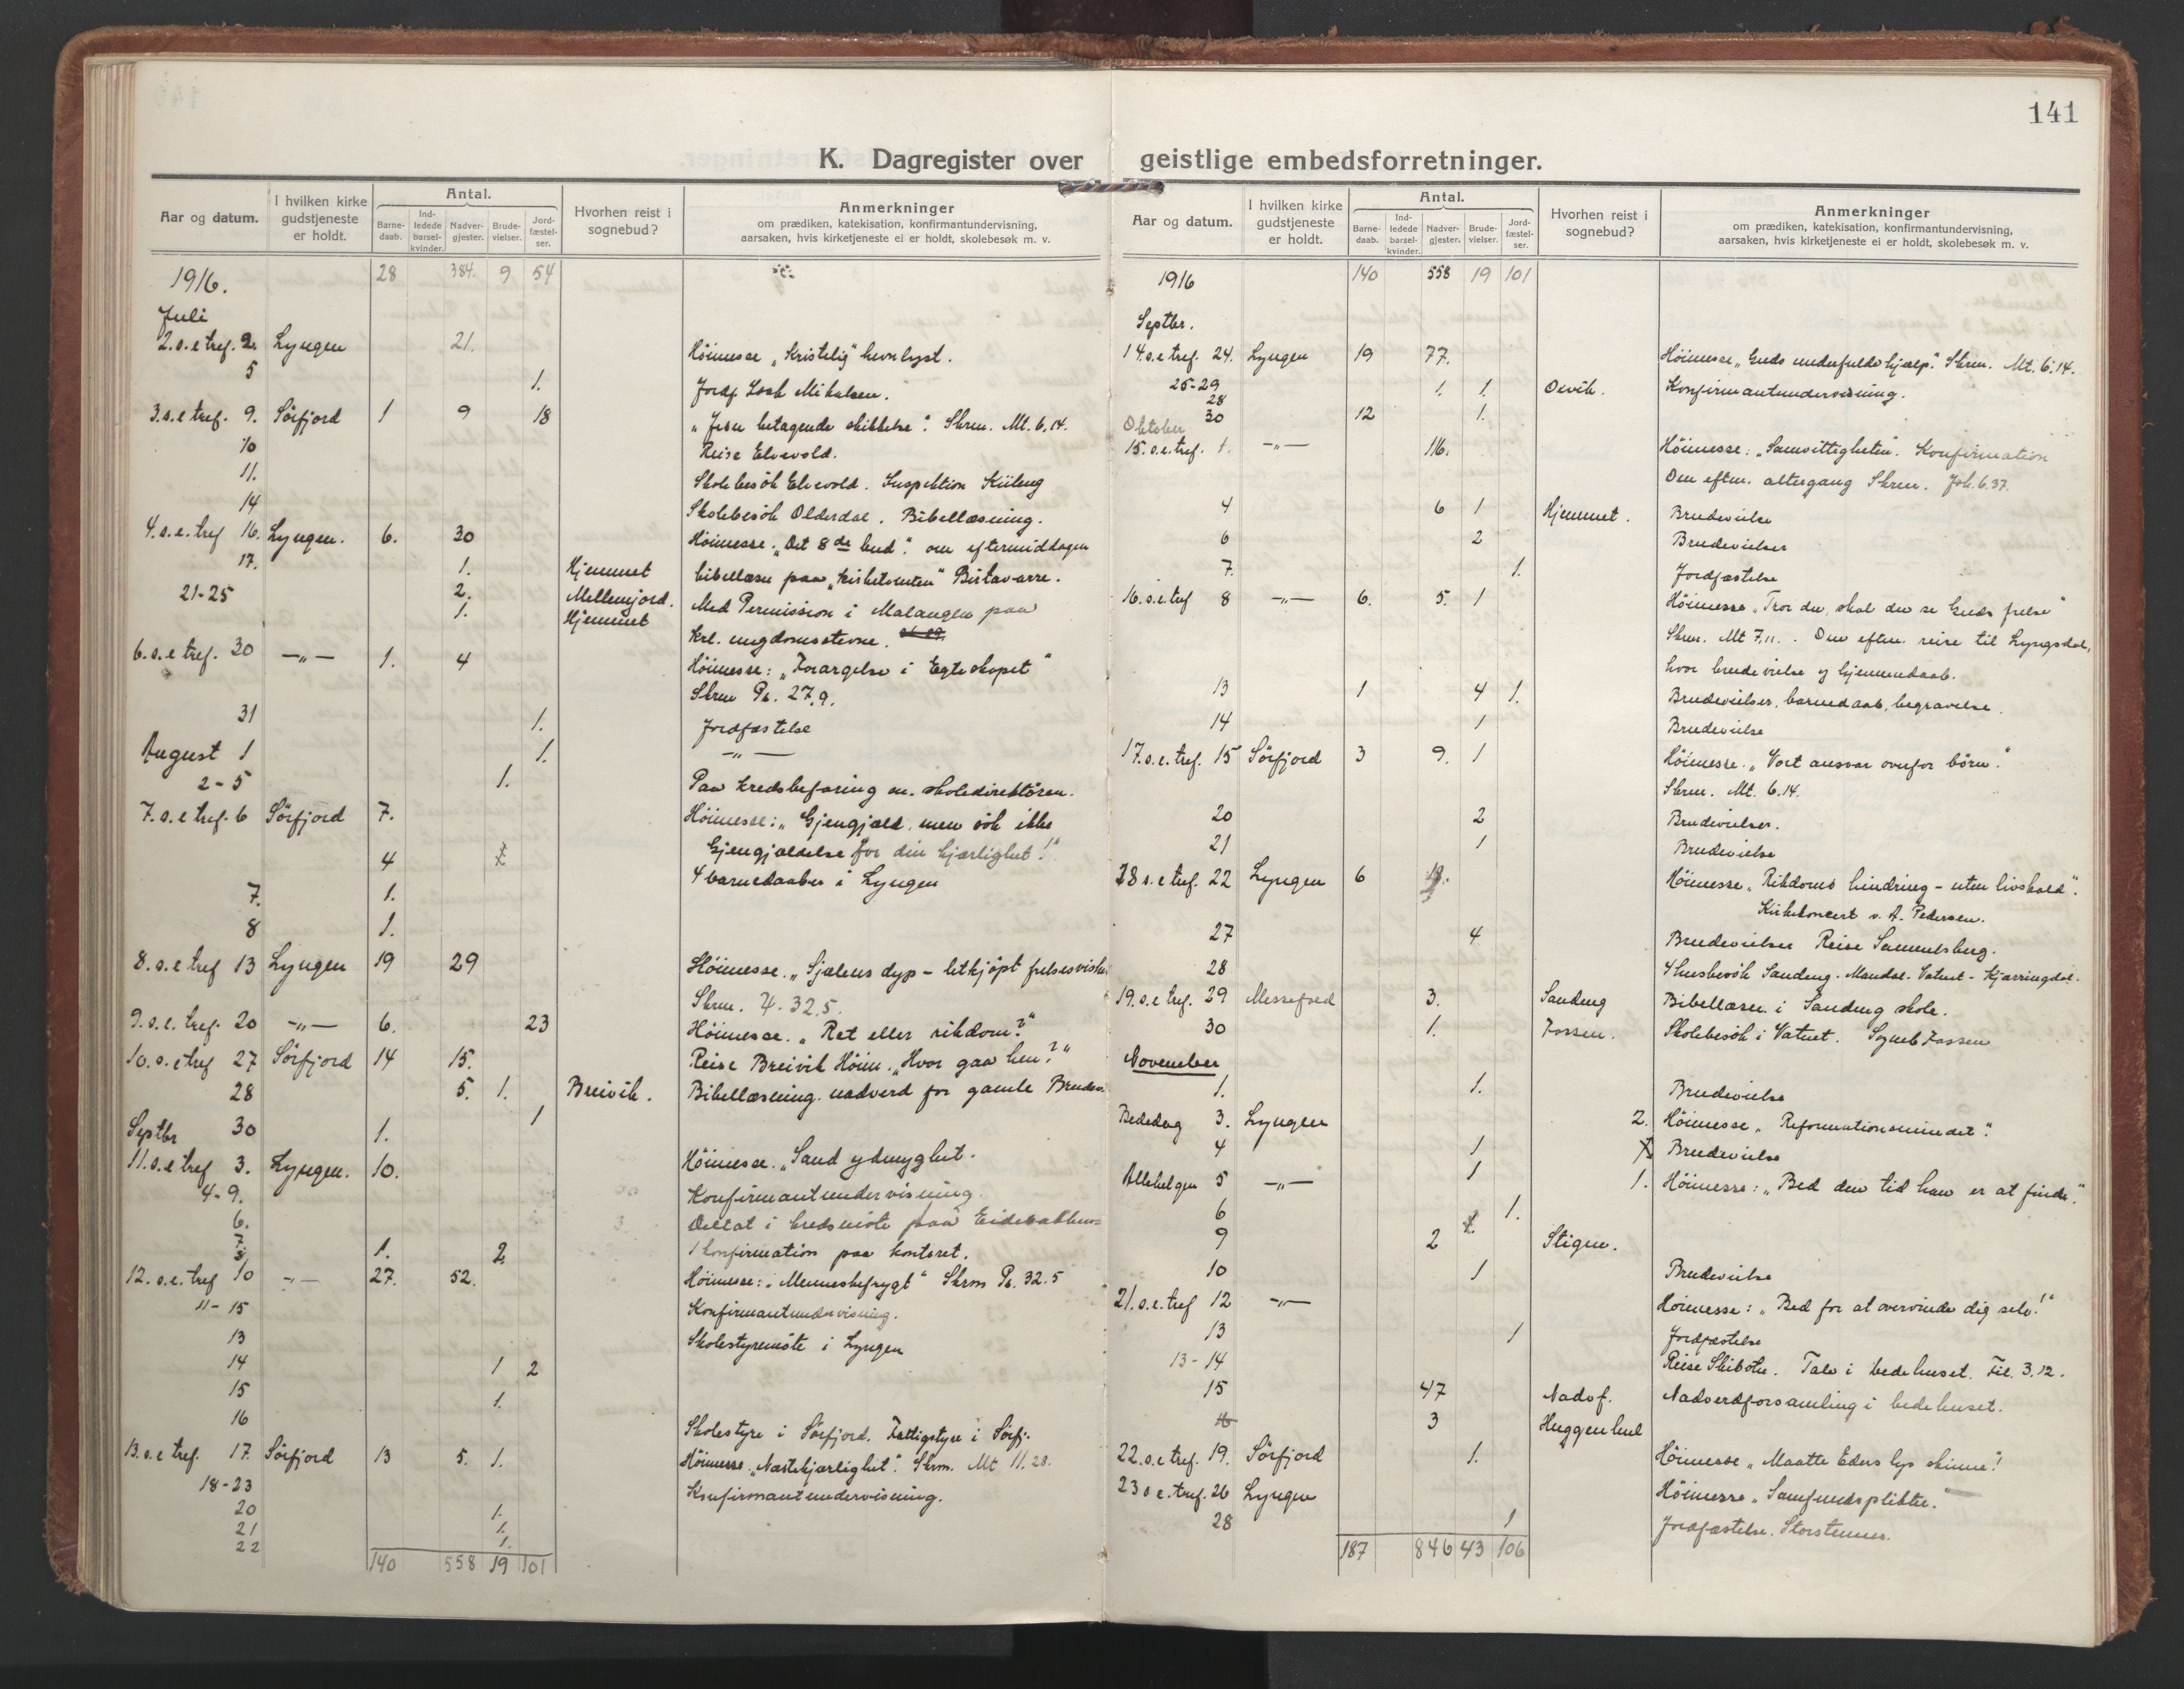 141
K. Dagregister over geistlige embedsforretninger.
Aar og datum. I hvilken kirke gudstjeneste er holdt. Antal. Barne-daab. Ind-ledede barsel-kvinder. Nadver-gjester. Brude-vielser. Jord-fæstel-ser. Hvorhen reist i sognebud? Anmerkninger om prædiken, katekisation, konfirmantundervisning, aarsaken, hvis kirketjeneste ei er holdt, skolebesøk m. v.
1916. 28 384. 9 54
Juli
2.s.e tref. 2. Lyngen 21. Höimesse „Kristelig" hevnlyst.
5 1. Jordf. Mikalsen.
3.s.e tref. 9. Sörfjord 1 9 18 „Jesu betagende skikkelse". Skrm. Mt. 6,14.
10 Reise Elvevold.
11. Skolebesök Elvevold. Inspektion Kiileng
14 Skolebesök Olderdal. Bibellæsning.
4.s.e.tref 16. Lyngen. 6. 30 Höimesse. „Det 8de bud". om eftermiddagen
17. 1. Hjemmet bibellæsn paa „kirketomten" Birtavarre.
21-25 2. Mellemjord. Med Permission i Malangen paa
1. Hjemmet Krl. ungdomsstevne.
6.s.e tref. 30 -„- 1. 4 Höimesse: „Forargelse i Egteskapet"
Skrm Ps. 27,9.
31 1. Jordfæstelse
August 1 1. -„-
2-5 1. Paa kredsbefaring m. skoledirektören.
7.s.e tref. 6 Sörfjord 7. Höimesse: „Gjengjæld, men sök ikke
Gjengjældelse for din kjærlighet!"
4 4 barnedaaber i Lyngen
7. 1.
8 1.
8.s.e tref 13 Lyngen 19 29 Höimesse. „Sjælens dyp - letkjöpt
Skrm. 4. 32,5.
9.s.e. tref. 20 -„- 6. 23 Höimesse. „Ret eller rikdom?"
10.s.e tref 27 Sörfjord 14 15. Reise Breivik Höim. „Hvor gaa hen?"
28 5. 1. Breivik. Bibellæsning. nadverd for gamle Brudev.
30 1. 1
Septbr
11.s.e tref 3. Lyngen. 10. Höimesse. „Sand ydmyghet.
4-9. Konfirmantundervisning.
6. Deltat i kredsmöte paa Eidebakken
7. 1 konfirmation paa kontoret.
8. 1. 2
12.s.e.tref 10 -„- 27. 52. Höimesse: „Menneskefrygt" Skrm Ps. 32.5
11-15 Konfirmantundervisning.
13 Skolestyremöte i Lyngen
14 1 2
15 1.
16 Skolestyre i Sörfjord. Fattigstyre i Sörfj.
13.s.e tref. 17. Sörfjord 13 5. 1. Höimesse. „Næstekjærlighet". Skrm. Mt 11.28.
18-23 Konfirmantundervisning.
20 1.
21 1.
22 1.
140 558 19 101
Aar og datum. I hvilken kirke gudstjeneste er holdt. Antal. Barne-daab. Ind-ledede barsel-kvinder. Nadver-gjester. Brude-vielser. Jord-fæstel-ser. Hvorhen reist i sognebud? Anmerkninger om prædiken, katekisation, konfirmantundervisning, aarsaken, hvis kirketjeneste ei er holdt, skolebesøk m. v.
1916 140 558 19 101
Septbr.
14.s.e tref. 24. Lyngen 19 77. Höimesse „Guds underfulde hjælp." Skrm. Mt. 6.14.
25-29 1. 1. Konfirmantundervisning.
28
30 12 1.
Oktober
15.s.e.tref. 1. -„- 116. Höimesse: „Samvittigheten". Konfirmation
Om eftm. altergang Skrm. Joh. 6.37.
4 6 1 Hjemmet. Brudevielse
6 2 Brudevielser
7. 1. Jordfæstelse
16.s.e.tref 8 -„- 6. 5. 1 Höimesse „Tror du, skal du se Guds frelse"
Skrm. Mt 7,11. Om eftm. reise til Lyngsdal,
hvor brudevielse og hjemmedaab.
13 1 4 1. Brudevielser, barnedaab, begravelse.
14 1 Brudevielse
17.s.e.tref. 15 Sörfjord 3 9. 1 Höimesse. „Vort ansvar overfor börn."
Skrm. Mt. 6.14.
20 2 Brudevielser.
21 1 Brudevielse
18 s.e tref. 22 Lyngen 6 Höimesse „Rikdoms hindring - uten livskald".
Kirkekoncert v. A. Pedersen.
27 4 Brudevielser Reise Samuelsberg.
28 4 husbesök Sandeng. Mandal. Vatnet - Kjærringdal.
19.s.e tref. 29 Messefald 3. Sandeng Bibellæsn. i Sandeng skole.
30 1. Fossen. Skolebesök i Vatnet. Sogneb Fossen
November
1. 1. Brudevielse
Bededag 3. Lyngen 2. Höimesse „Reformationsmindet".
4 1 Brudevielse
Allehelgen 5 -„- 1 1. Höimesse: „Bed den tid han er at finde."
6 1.
9 2 Stigen.
10 1 Brudevielse
21.s.e.tref 12 -„- Höimesse: „Bed for at overvinde dig selv!"
13 1 Jordfæstelse
13-14 Reise Skibotn. Tale i bedehuset. Fil. 3.12.
15 47 Nadvf. Nadverdforsamling i bedehuset.
16 3
22.s.e tref. 19. Sörfjord 1. Höimesse „Maatte Eders lys skinne!
23 s e. tref. 26 Lyngen Höimesse „Samfundsplikter."
28 1 Jordfæstelse. Storstennes.
187 846 43 106